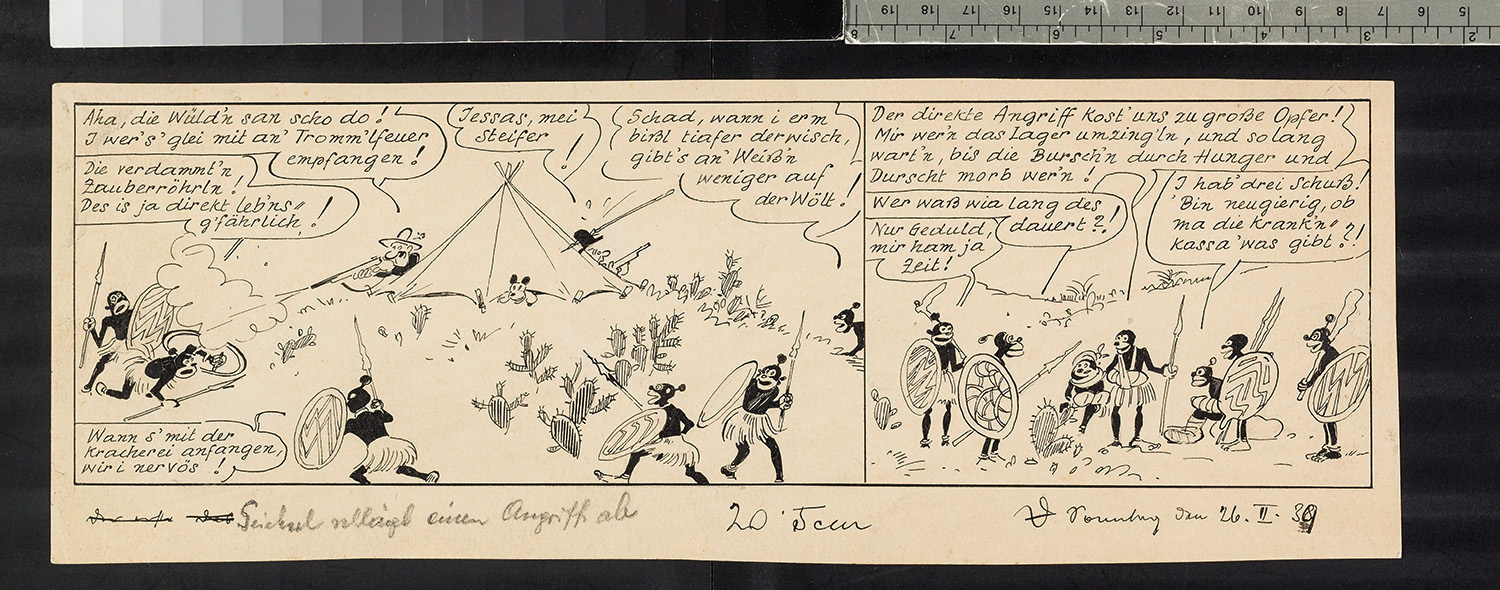 Aha, die Wüld'n san scho do!
I wer's' glei mit an' Tromm'lfeuer
empfangen!
Die verdammt'n
Zauberröhrln!
Des is ja direkt leb'ns=
g'fährlich!
Jessas, mei
steifer
!
Schad, wann i erm
bißl tiafer derwisch,
gibt's an' Weiß'n
weniger auf
der Wölt!
Wann s' mit der
Kracherei anfangen,
wir i nervös!
Der direkte Angriff kost' uns zu große Opfer!
Mir wer'n das Lager umzingl'n, und so lang
wart'n, bis die Bursch'n durch Hunger und
Durscht morb wer'n!
Wer waß wia lang des
dauert?!
Nur Geduld,
mir ham ja
Zeit!
I hab' drei Schuß!
'Bin neugierig, ob
ma die Krank'n=
kassa' was gibt?!
Seicherl schlägt einen Angriff ab
20
Sonntag den 26. II. 39
19 18 17 16 15 14 13 12 11 10 9 8 7 6 5
8 7 6 5 4 3 2